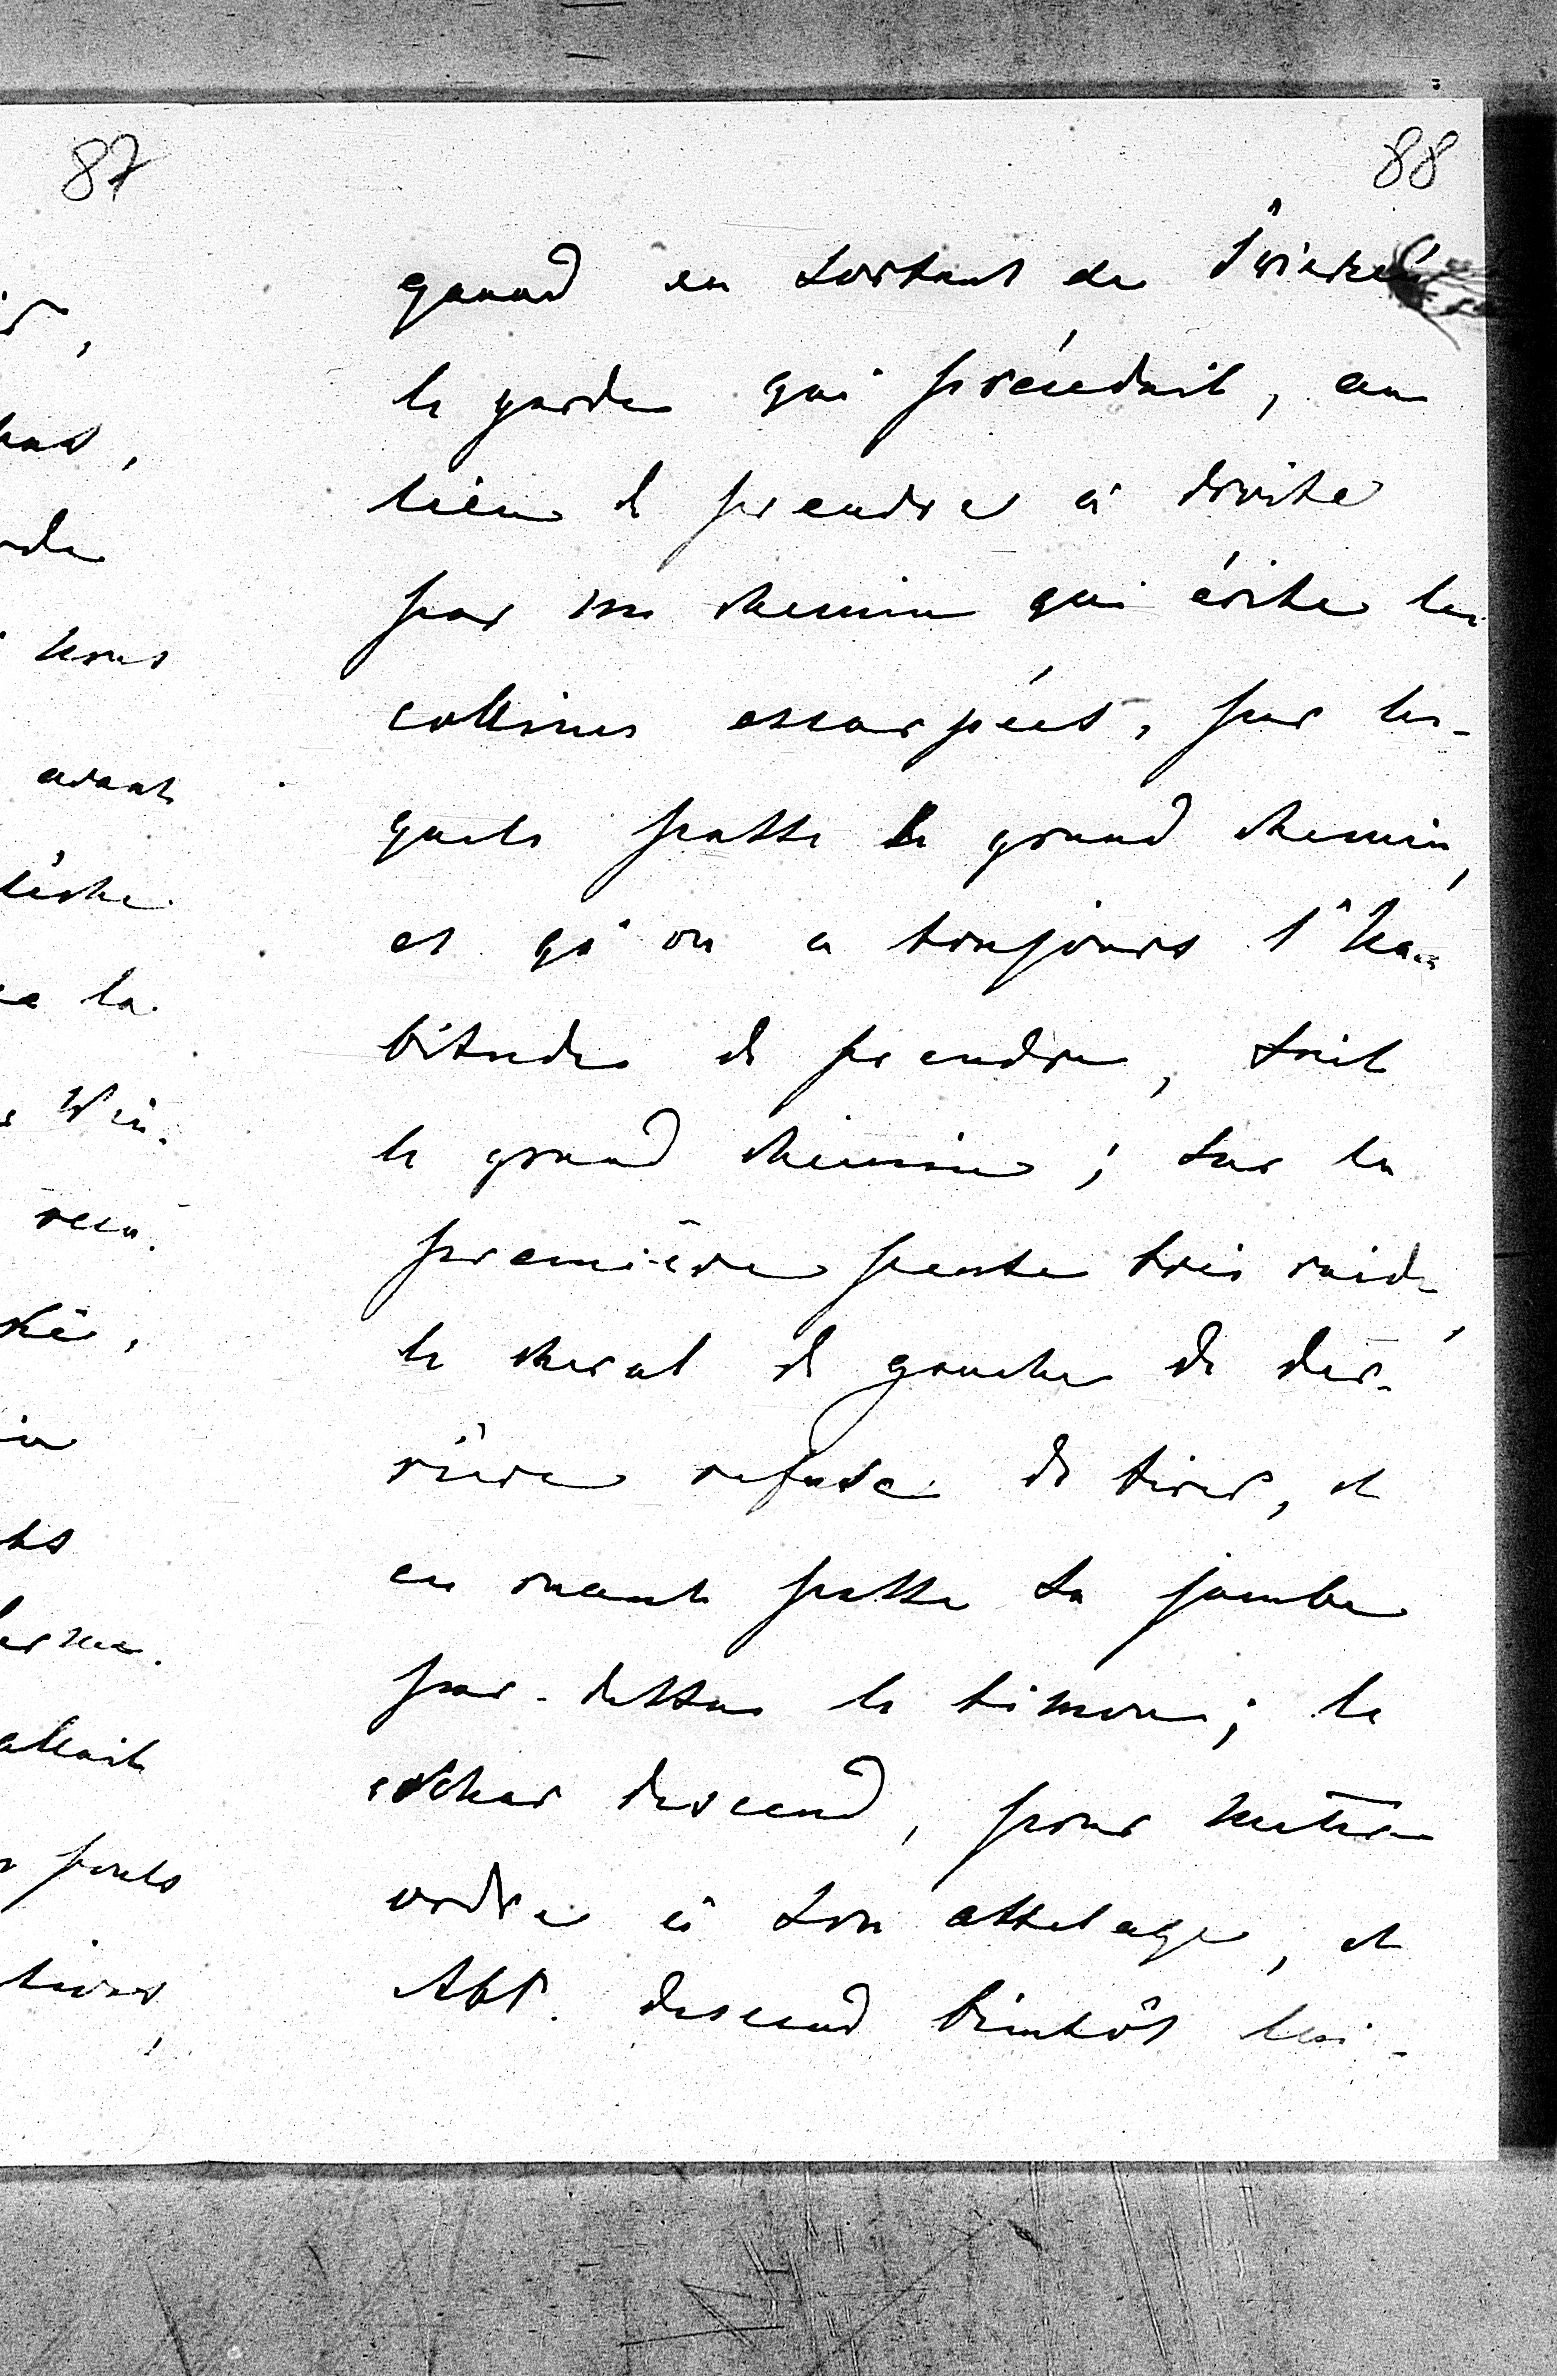 87
88
quand en sortant de
le garde qui précédait, au
lieu de prendre à droite
par un chemin qui évite les
collines escarpées, par les-
quels passe le grand chemin,
et qu'on a toujours l'ha-
bitude de prendre, suit
le grand chemin; sur la
première pente très raide,
le cheval de gauche de der-
rière refuse de tirer, et
en ruant passe sa jambe
par-dessus le timon; le
cocher descend, pour mettre
ordre à son attelage, et
Abb. descend bientôt lui-